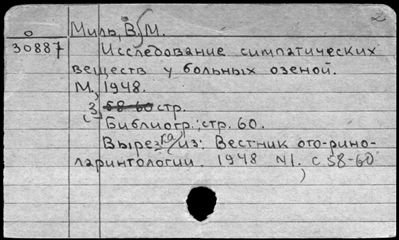 2
о Миль, В. М.
30887 Исследование симпатических
веществ у больных озеной.
М., 1948.
3 58-60 стр.
Библиогр.: стр. 60.
Вырезка из: Вестник ото-рино-
ларингологии. 1948 N1. с 58-60